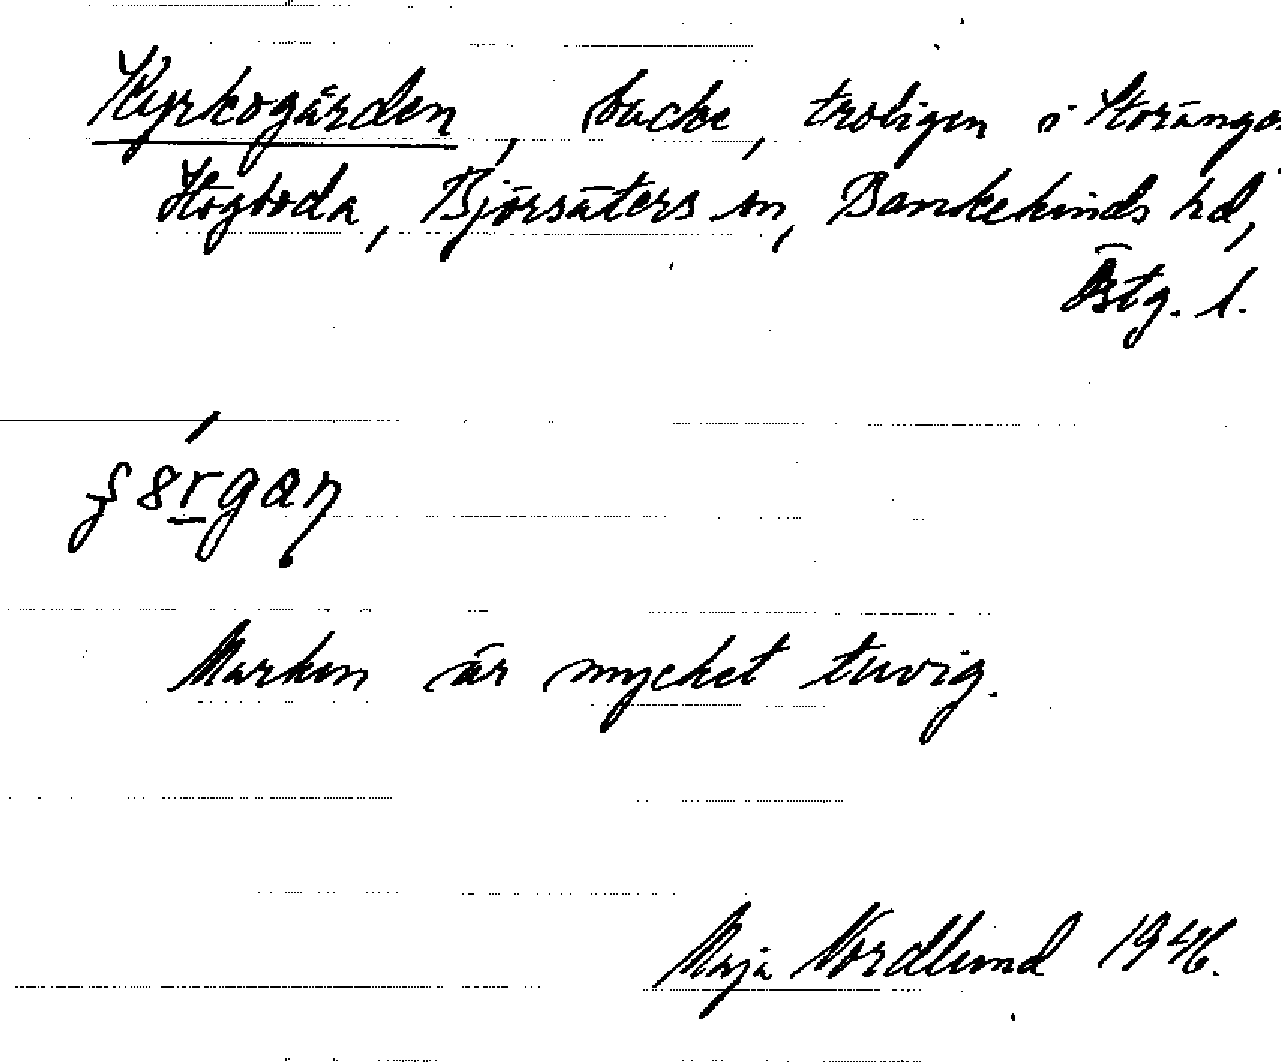 Kyrkogården, backe, troligen i Storänga
Högboda, Björsäters sn, Bankekinds hd,
Östg. l.
Marken är mycket tuvig.
Maja Nordlund 1946.